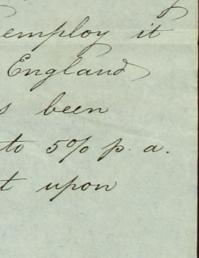 employ it
England
s been
to 5% p. a.
t upon